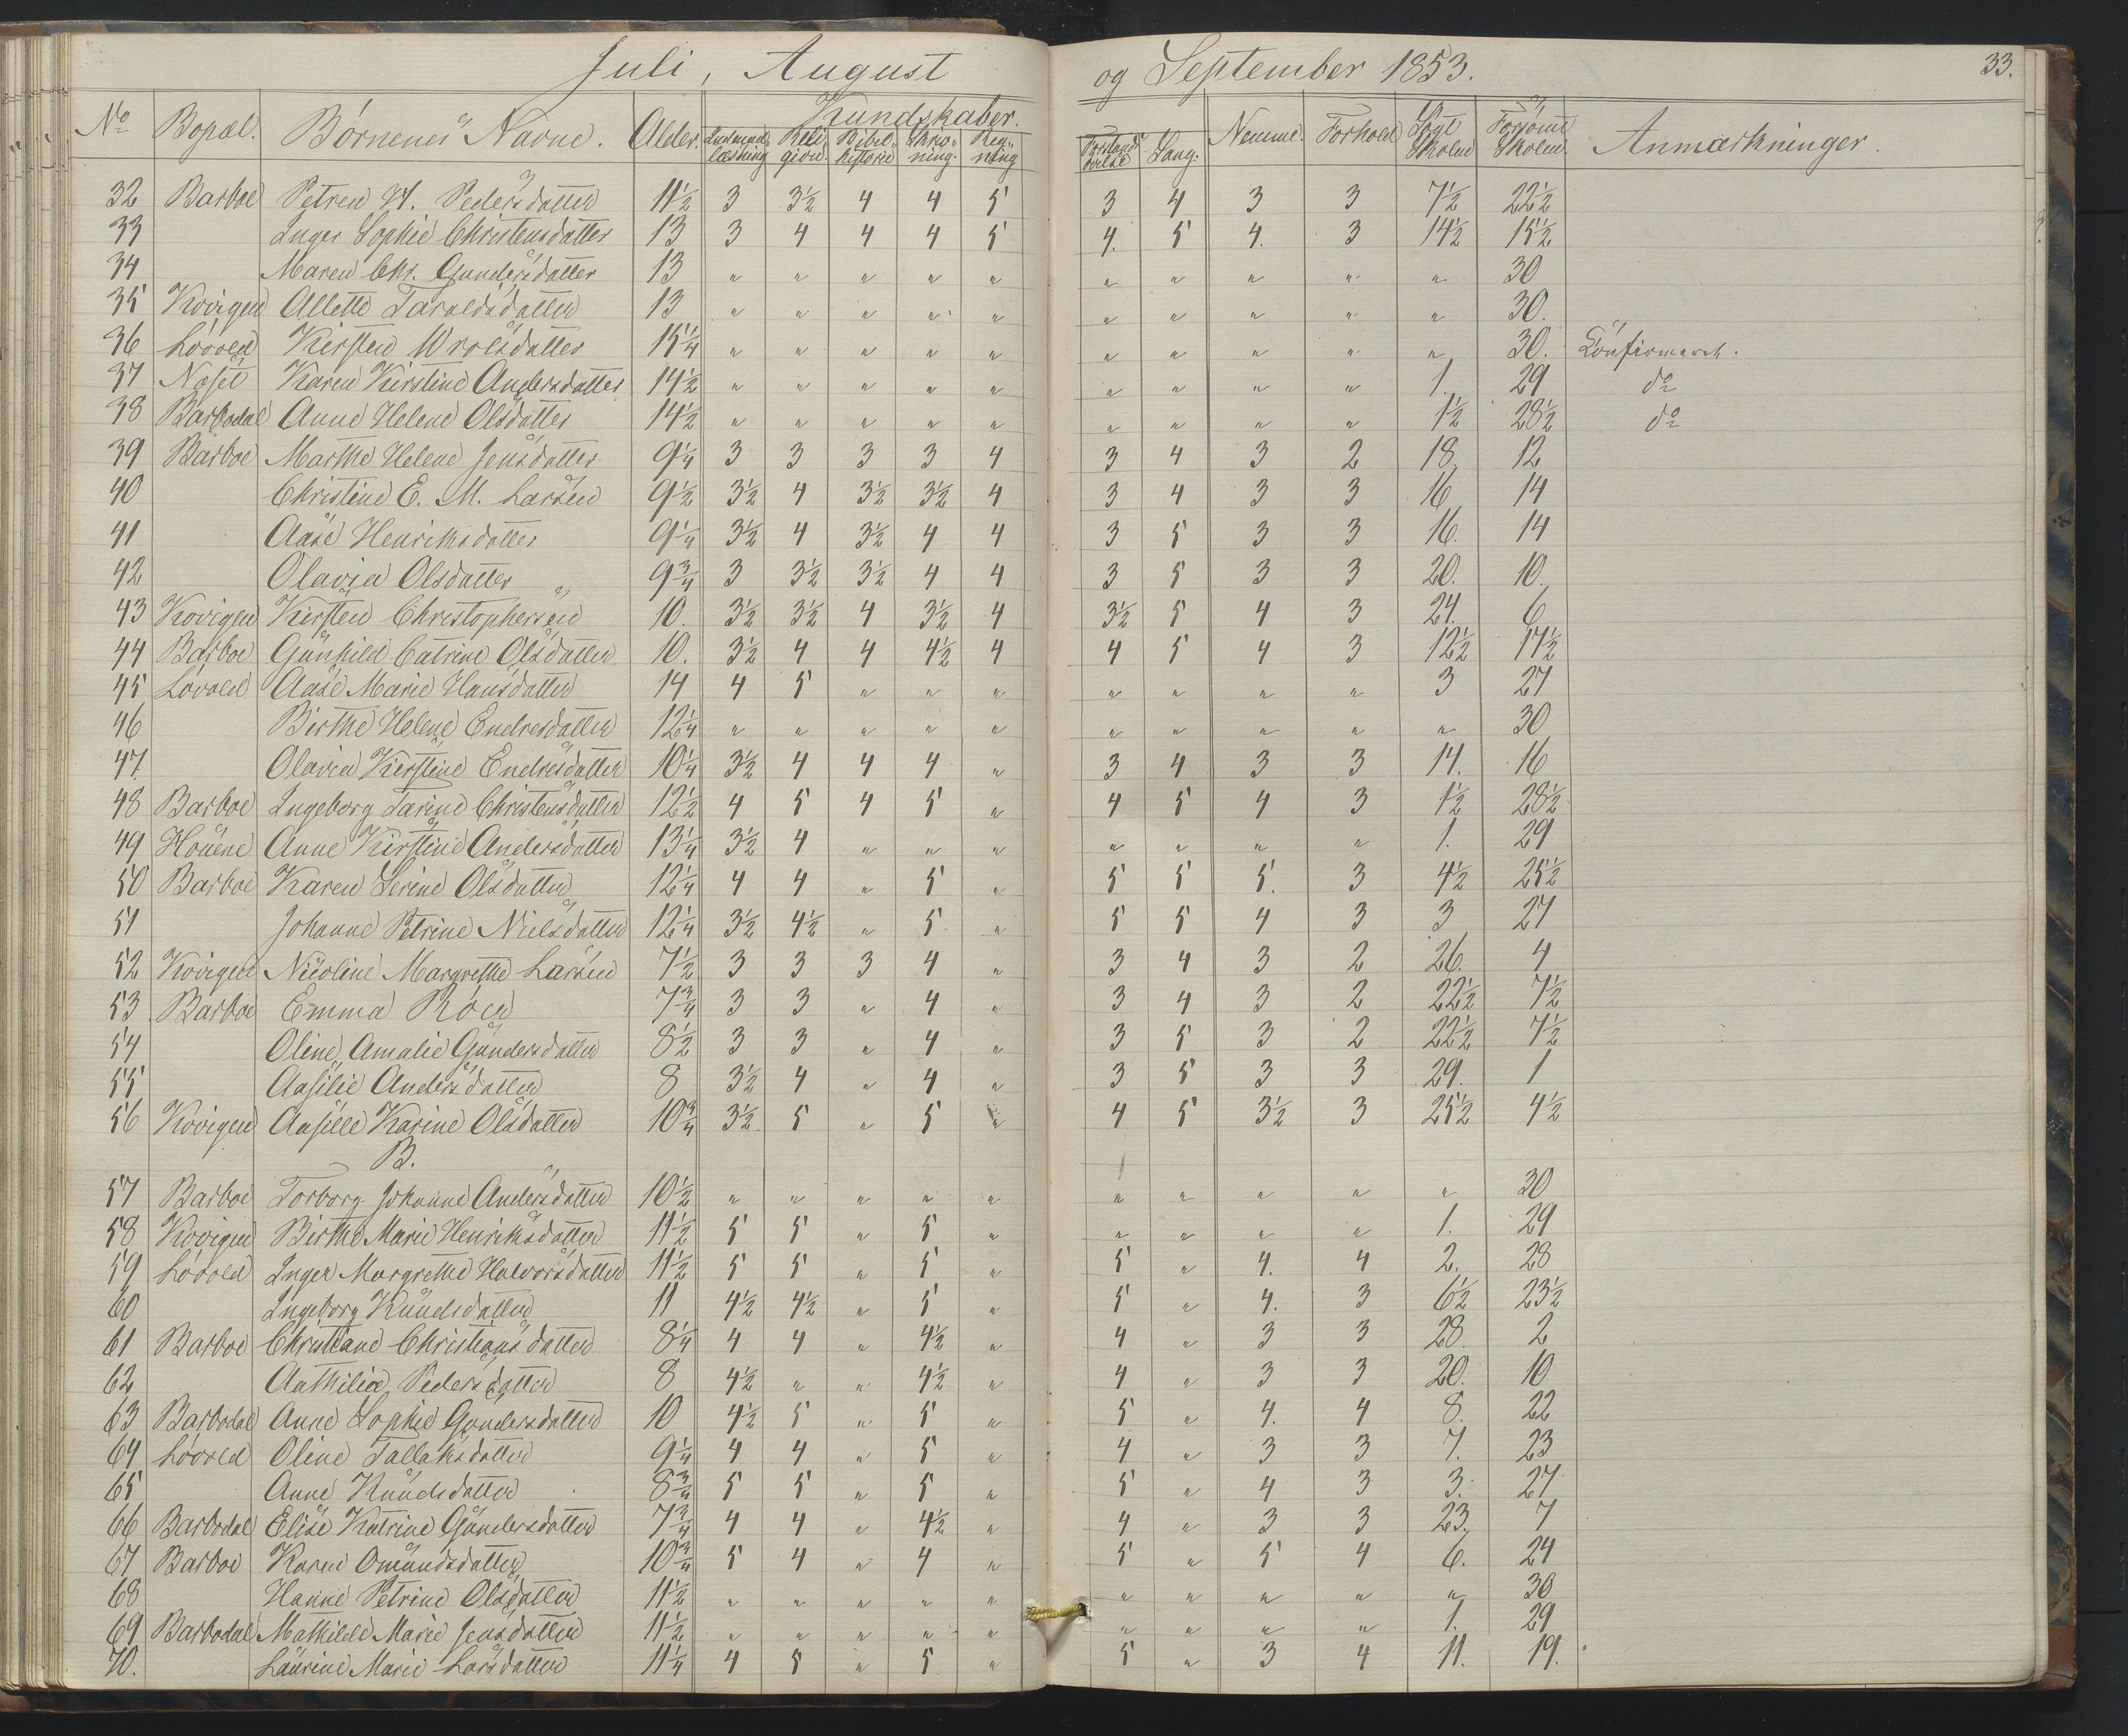 Juli, August og September 1853. 33.
No Bopæl. Børnenes Navne. Alder. Kundskaber. Nemme. Forhold Søgt Skolen Forsømt Skolen Anmærkninger.
læsning Religion. Bibelhistorie Skrivning. Regning Sang.
32 Barboe Petrea H. Pedersdatter 11½ 3 3½ 4 4 5 3 4 3 3 7½ 22½
33 Inger Sophie Christensdatter 13 3 4 4 4 5 4. 5 4. 3 14½ 15½
34 Maren Chr. Gundersdatter 13 " " " " " " " " " " 30
35 Kovigen Allette Taraldsdatter 13 " " " " " " " " " " 30.
36 Løvold Kirsten Wrolsdatter 15¼ " " " " " " " " " " 30. Confirmeret.
37 Næset Karen Kirstine Andersdatter 14½ " " " " " " " " " 1. 29 do
38 Barbodal Anne Helene Olsdatter 14½ " " " " " " " " " 1½ 28½ do
39 Barboe Marthe Helene Jensdatter 9¼ 3 3 3 3 4 3 4 3 2 18 12
40 Christine E. M. Larsen 9½ 3½ 4 3½ 3½ 4 3 4 3 3 16 14
41 Aase Henriksdatter 9¼ 3½ 4 3½ 4 4 3 5 3 3 16. 14
42 Olavia Olsdatter 9¾ 3 3½ 3½ 4 4 3 5 3 3 20. 10.
43 Kovigen Kirsten Christophersen 10. 3½ 3½ 4 3½ 4 3½ 5 4 3 24. 6
44 Barboe Gunhild Catrine Olsdatter 10. 3½ 4 4 4½ 4 4 5 4 3 12½ 17½
45 Løvold Aase Marie Hansdatter 14 4 5 " " " " " " " 3 27
46 Birthe Helene Endresdatter 12¼ " " " " " " " " " " 30
47. Olavia Kirstine Endresdatter 10¼ 3½ 4 4 4 " 3 4 3 3 14. 16
48 Barboe Ingeborg Tarine Christensdatter 12½ 4 5 4 5 " 4 5 4 3 1½ 28½
49 Houene Anne Kirstine Andersdatter 13¼ 3½ 4 " " " " " " " 1. 29
50 Barboe Karen Serine Olsdatter 12¼ 4 4 " 5 " 5 5 5. 3 4½ 25½
51 Johanne Petrine Nielsdatter 12¼ 3½ 4½ " 5 " 5 5 4 3 3 27
52 Kovigen Nicoline Margrethe Larsen 7½ 3 3 3 4 " 3 4 3 2 26. 4
53 Barboe Emma 7¾ 3 3 " 4 " 3 4 3 2 22½ 7½
54 Oline Amalie Gundersdatter 8½ 3 3 " 4 " 3 5 3 2 22½ 7½
55 Aasilie Andersdatter 8 3½ 4 " 4 " 3 5 3 3 29. 1
56 Kovigen Aasille Karine Olsdatter 10¾ 3½ 5 " 5 " 4 5 3½ 3 25½ 4½
B.
57 Barboe Torborg Johanne Andersdatter 10½ " " " " " " " " " " 30
58 Kovigen Birthe Marie Henriksdatter 11½ 5 5 " 5 " " " " " 1. 29
59 Løvold Inger Margrethe Halvorsdatter 11½ 5 5 " 5 " 5 " 4. 4 2. 28
60 Ingeborg Knudsdatter 11 4½ 4½ " 5 " 5 " 4. 3 6½ 23½
61 Barboe Christiane Christiansdatter 8¼ 4 4 " 4½ " 4 " 3 3 28 2
62 Aathilia Pedersdatter 8 4½ " " 4½ " 4 " 3 3 20. 10
63 Barbodal Anne Sophie Gundersdatter 10 4½ 5 " 5 " 5 " 4. 4 8. 22
64 Løvold Oline Tallaksdatter 9¼ 4 4 " 5 " 4 " 3 3 7. 23
65 Anne Knudsdatter 8¾ 5 5 " 5 " 5 " 4 3 3. 27
66 Barbodal Elise Katrine Gundersdatter 7¾ 4 4 " 4½ " 4 " 3 3 23. 7
67 Barboe Karen Omundsdatter 10¾ 5 4 " 4 " 5 " 5 4 6. 24
68 Hanne Petrine Olsdatter 11½ " " " " " " " " " " 30
69 Barbodal Mathilde Marie Jensdatter 11½ " " " " " " " " " 1. 29
70. Laurine Marie Larsdatter 11¼ 4 5 " 5 " 5 " 3 4 11. 19.